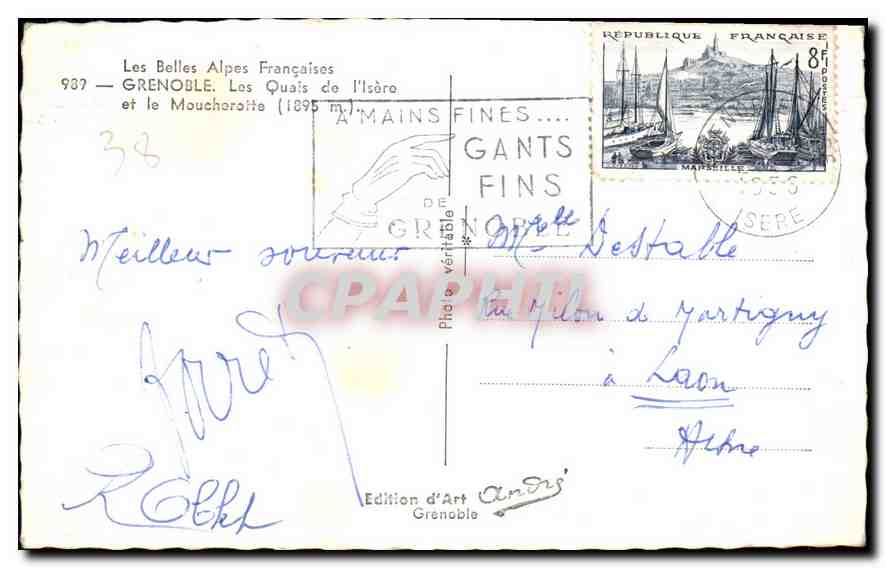 Les Belles Alpes Françaises
989 — GRENOBLE. Les Quais de l'Isère
et le Moucherotte (1895 m.).
38
A MAINS FINES....
GANTS
FINS
DE
GRENOBLE
RÉPUBLIQUE FRANÇAISE
8F
POSTES
MARSEILLE
1956
ISERE
Meilleur souvenir
Photo véritable
*
CPAPHIL
Melle Destable
Rue Milon de Martigny
à Laon
Aisne
Edition d'Art andré
Grenoble